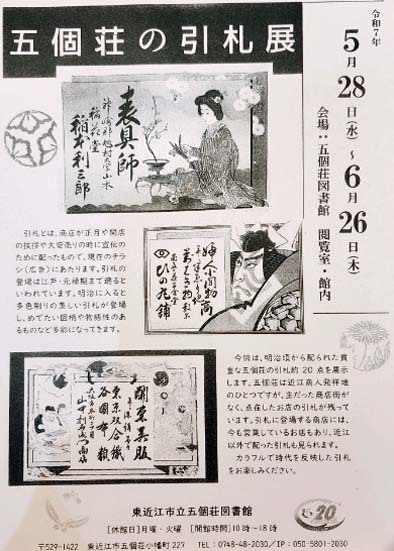 五個荘の引札展
令和7年
5月28日(水)～6月26日(木)
会場:五個荘図書館 閲覧室・館内
表具師
稲荷堂
稲本利三郎
婦人小間物商
ひの屋舗
引札とは、商店が正月や開店
の挨拶や大安売りの時に宣伝の
ために配ったもので、現在のチラ
シ(広告)にあたります。引札の
登場は江戸・元禄期まで遡ると
いわれています。明治に入ると
多色刷りの美しい引札が登場
し、めでたい図柄や物語性のあ
るものなど多彩になってきます。
関東呉服
東京双合織
各国布類
今回は、明治頃から配られた貴
重な五個荘の引札約20点を展
示します。五個荘は近江商人発祥地
のひとつですが、主だった商店街が
なく、点在したお店の引札が残って
います。引札に登場する商店には、
今も営業しているお店もあり、近江
以外で配った引札も見られます。
カラフルで時代を反映した引札
をお楽しみください。
東近江市立五個荘図書館
20
[休館日]月曜・火曜 [開館時間]10時～18時
〒529-1422 東近江市五個荘小幡町227 TEL:0748-48-2030/IP:050-5801-2030